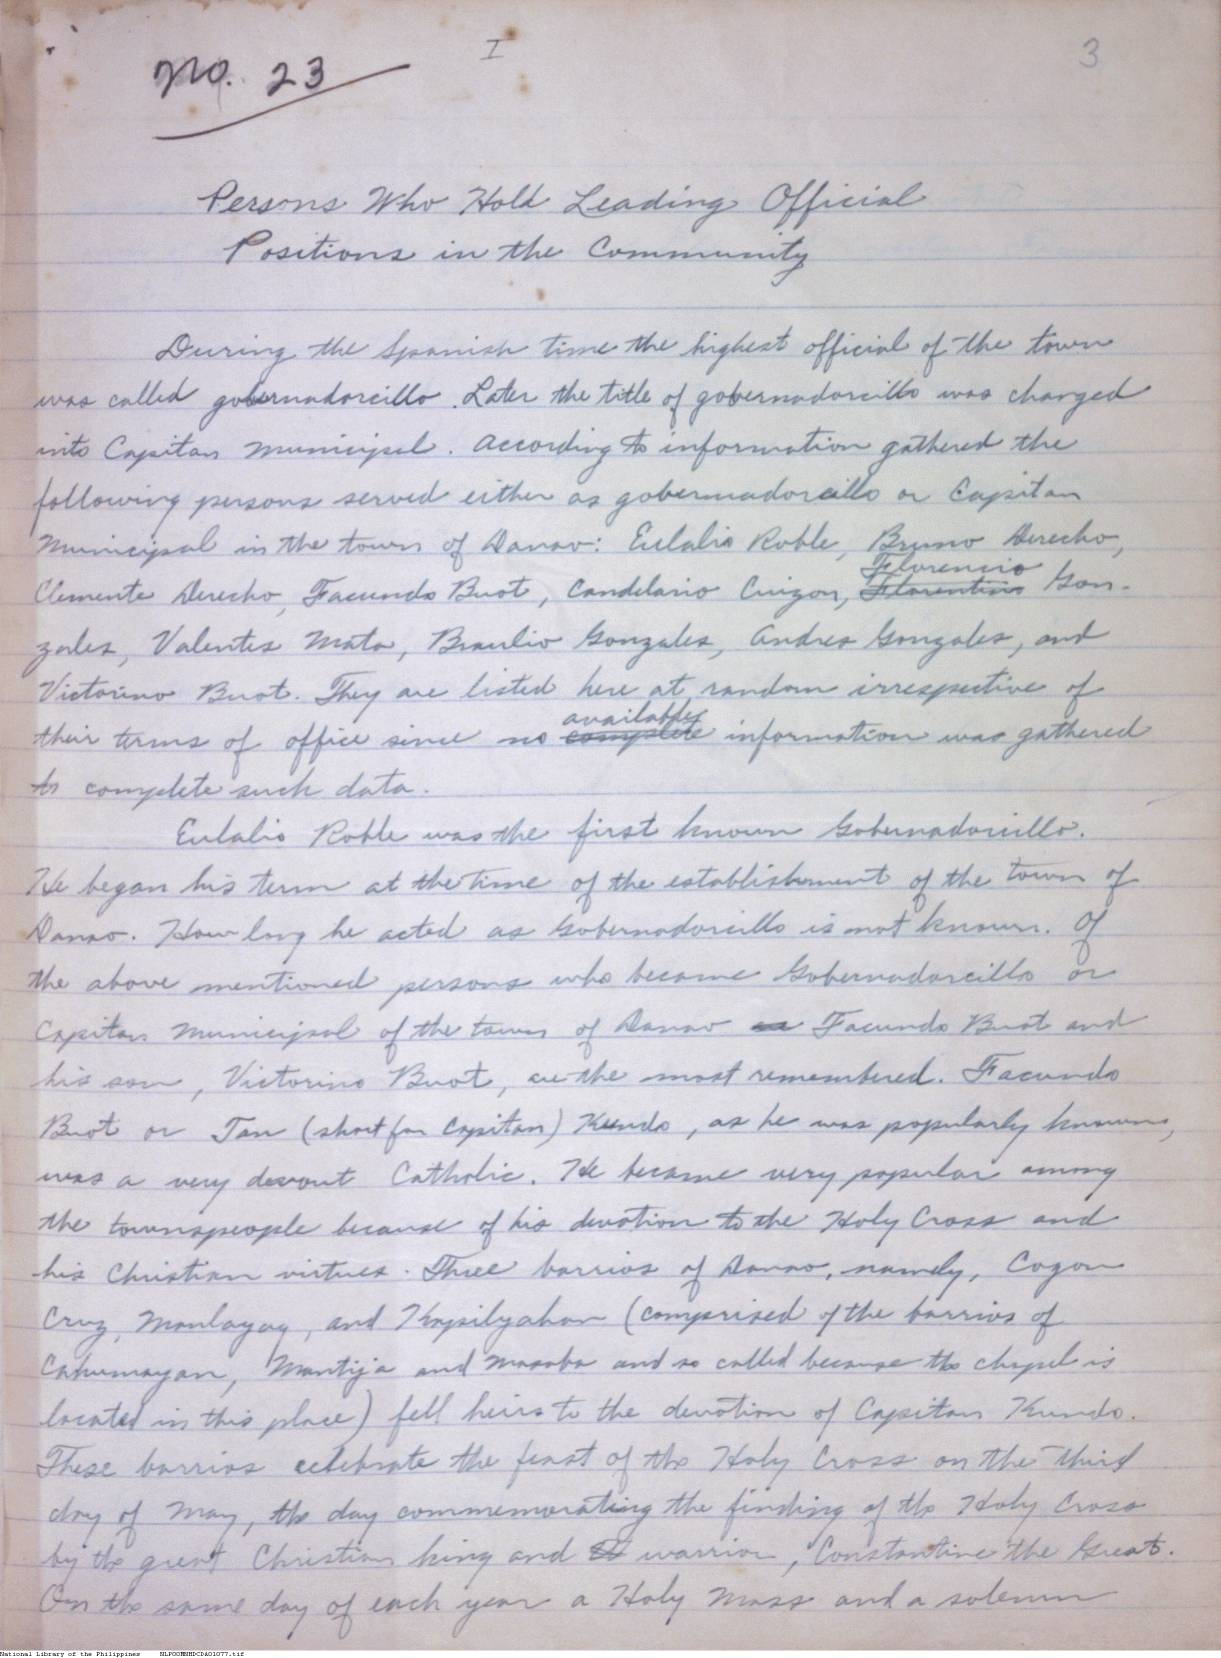 I
3
No. 23
Persons Who Hold Leading Official
Positions in the Community
During the Spanish time the highest official of the town
was called gobernadorcillo. Later the title of gobernadorcillo was changed
into Capitan Municipal. According to information gathered the
following persons served either as gobernadorcillo or Capitan
Municipal in the town of Danao: Eulalio Roble, Bruno Derecho,
Florencio
Clemente Derecho, Facundo Buot, Candelario Cuizon, Florentino Gon-
zales, Valentes Mata, Braulio Gonzales, Andres Gonzales, and
Victorino Buot. They are listed here at random irrespective of
available
their terms of office since no complete information was gathered
to complete such data.
Eulalio Roble was the first known Gobernadorcillo.
He began his term at the time of the establishment of the town of
Danao. How long he acted as Gobernadorcillo is not known. Of
the above mentioned persons who became Gobernadorcillo or
Capitan Municipal of the town of Danao Facundo Buot and
his son, Victorino Buot, are the most remembered. Facundo
Buot or Tan (short for Capitan) Kundo, as he was popularly known,
was a very devout Catholic. He became very popular among
the townspeople because of his devotion to the Holy Cross and
his Christian virtues. Three barrios of Danao, namely, Cogon
Cruz, Manlayag, and Kapilyahan (comprised of the barrios of
Cahumayan, Mantija and Masaba and so called because the chapel is
located in this place) fell heirs to the devotion of Capitan Kundo.
These barrios celebrate the feast of the Holy Cross on the third
day of May, the day commemorating the finding of the Holy Cross
by the great Christian king and warrior, Constantine the Great.
On the same day of each year a Holy Mass and a solemn
National Library of the Philippines NLPOOMNHDCDA01077.tif